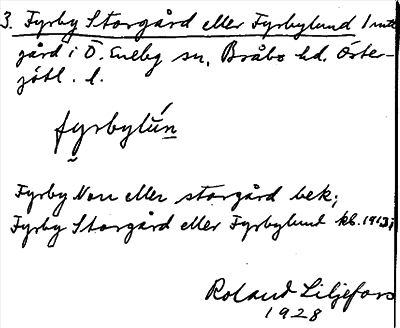 3. Fyrby Storgård eller Fyrbylund 1 mtl
gård i Ö. Eneby sn, Bråbo hd. Öster-
götl. l.
fyrbylún
Fyrby Norr eller storgård bek;
Fyrby Storgård eller Fyrbylund kb. 1913;
Roland Liljefors
1928